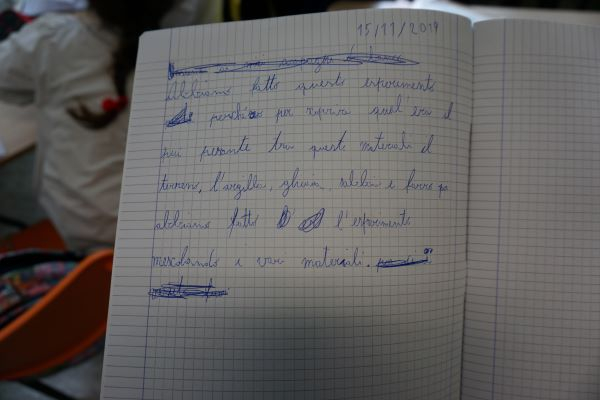 15/11/2019
Abbiamo fatto questo esperimento
perché per sapere qual era il
più pesante tra questi materiali il
terreno, l'argilla, ghiaia, sabbia e
abbiamo fatto l'esperimento
mescolando i vari materiali.